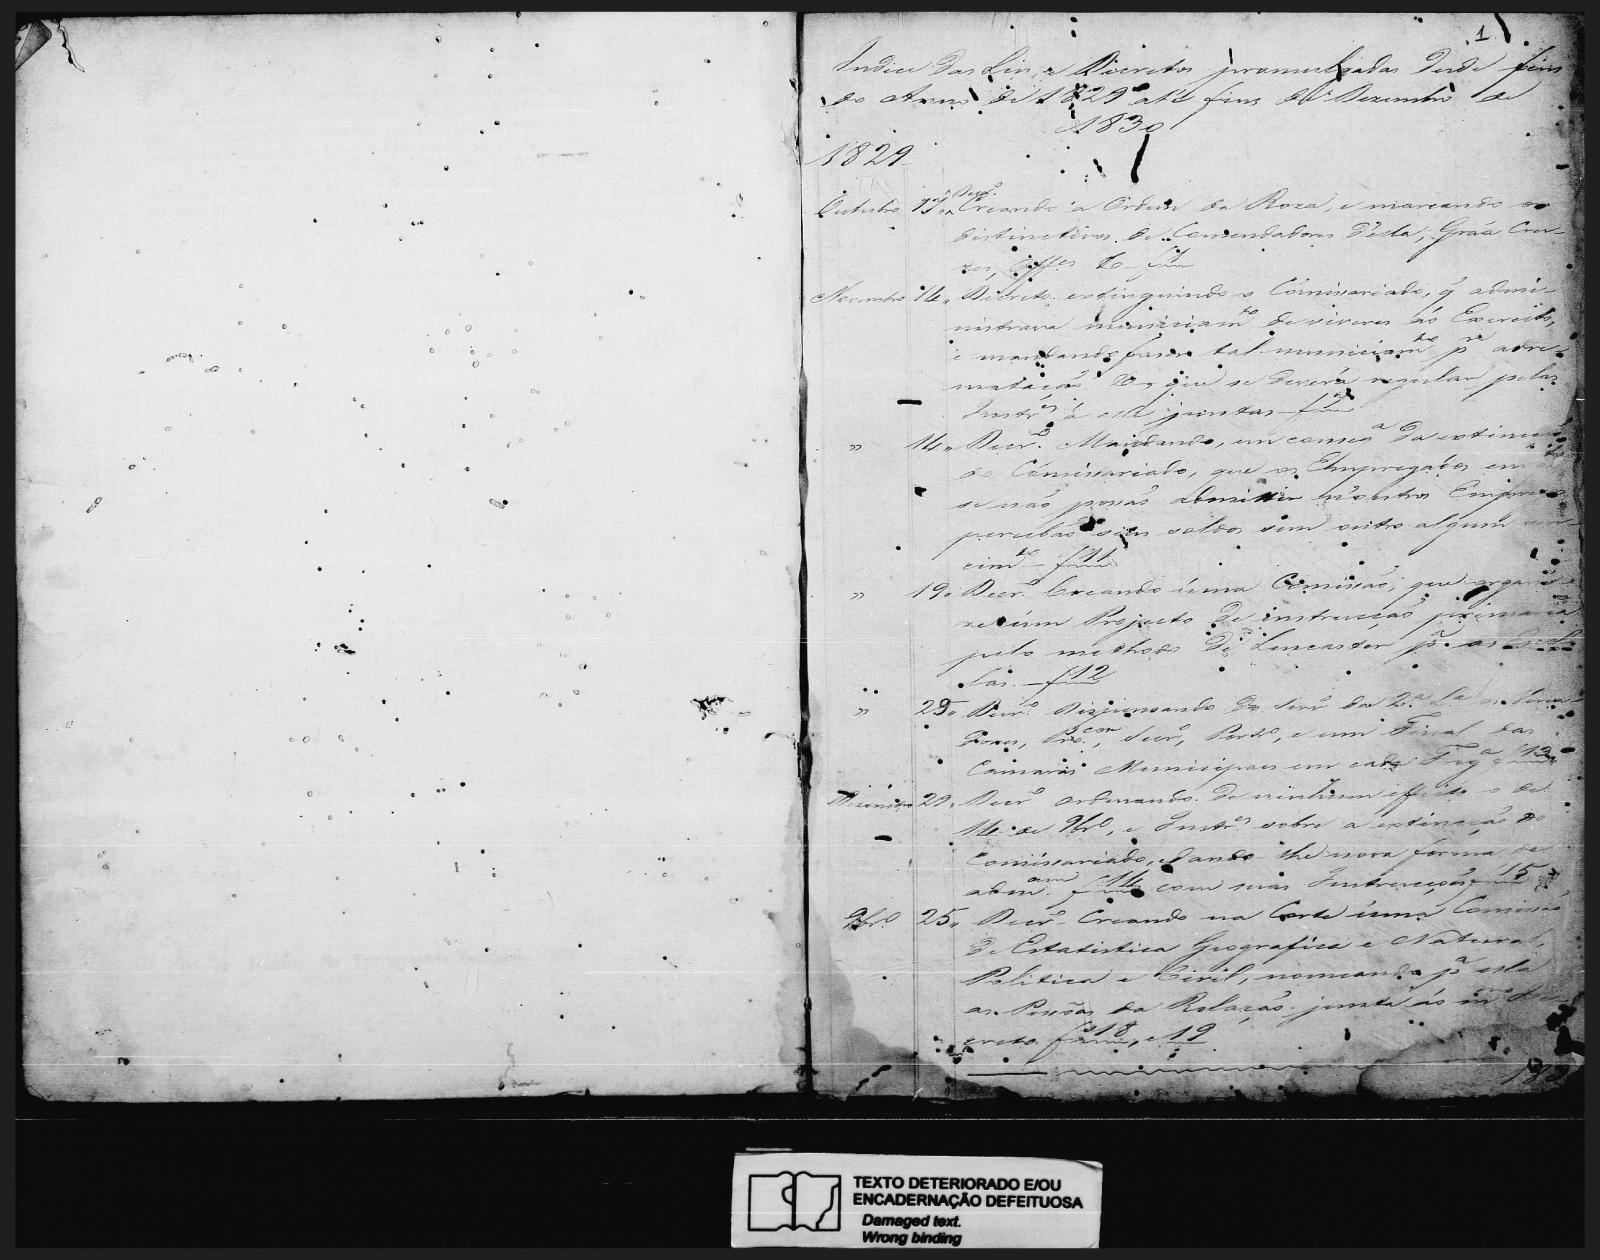 1
Indice das Leis, e Decretos promulgadas desde fins
do Anno de 1829 até fins de Dezembro de
1830
1829
Outubro 17 „ Decr.º Creando a Ordem da Roza, e marcando os
distinctivos de Comendadores d'esta, Grãa Cru-
zes, Off.es &
Novembro 14 „ Decreto extinguindo o Comissariado, q̃ admi-
nistrava municiam.to de viveres ao Exercito,
e mandando fazer tal municiam.to p.r arre-
matação &, que se deverá regular pelas
Instr.es a esta juntas
„ 14 „ Decr.º Mandando, em conseq.a da extincção
do Comissariado, que os Empregados em
se não possão admittir n'outros Empregos
percebão seus soldos sem outro algum ven-
cim.to f 11
„ 19 „ Decr.º Creando úma Comissão, que organi-
ze úm Projecto de instrucção primaria
pelo methodo de Lencaster p.a as Esco-
las. f 12
„ 25 „ Decr.º Dispensando do Serv.º da 2.a L.a os Verea-
dores, Proc.or, Secr.º, Port.º, e um Fiscal das
Camaras Municipaes em cada Freg.a f 13
Dezembro 29 „ Decr.º ordenando de ninhum effeito o de
14 de 9br.º, e Instr.es sobre a extincção do
Comissariado, e dando-lhe nova forma de
adm.am f 14 com suas Instrucções f 15
9br.º 25 „ Decr.º Creando na Corte úma Comissão
de Estatistica Geografica e Natural,
Politica e Civil, nomeando p.a esta
as Pessoas da Relação junta ao m.mo De-
creto f 18, e 19
TEXTO DETERIORADO E/OU
ENCADERNAÇÃO DEFEITUOSA
Damaged text.
Wrong binding